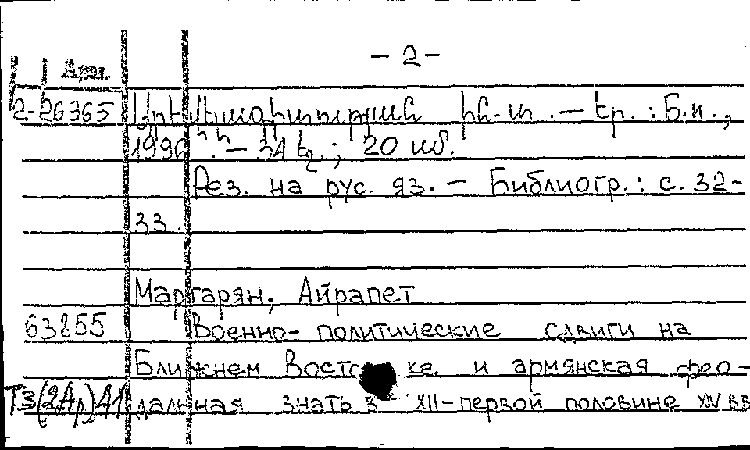 – 2 –
Арм.
2-26365 ին-տ. – Եր. : Б.и.,
1990. – 34 էջ ; 20 սմ.
Рез. на рус. яз. – Библиогр.: с. 32-
33.
Маргарян, Айрапет
63855 Военно-политические сдвиги на
Ближнем Востоке и армянская фео-
Т3(2Ар)41 дальная знать в XII-первой половине XIV вв